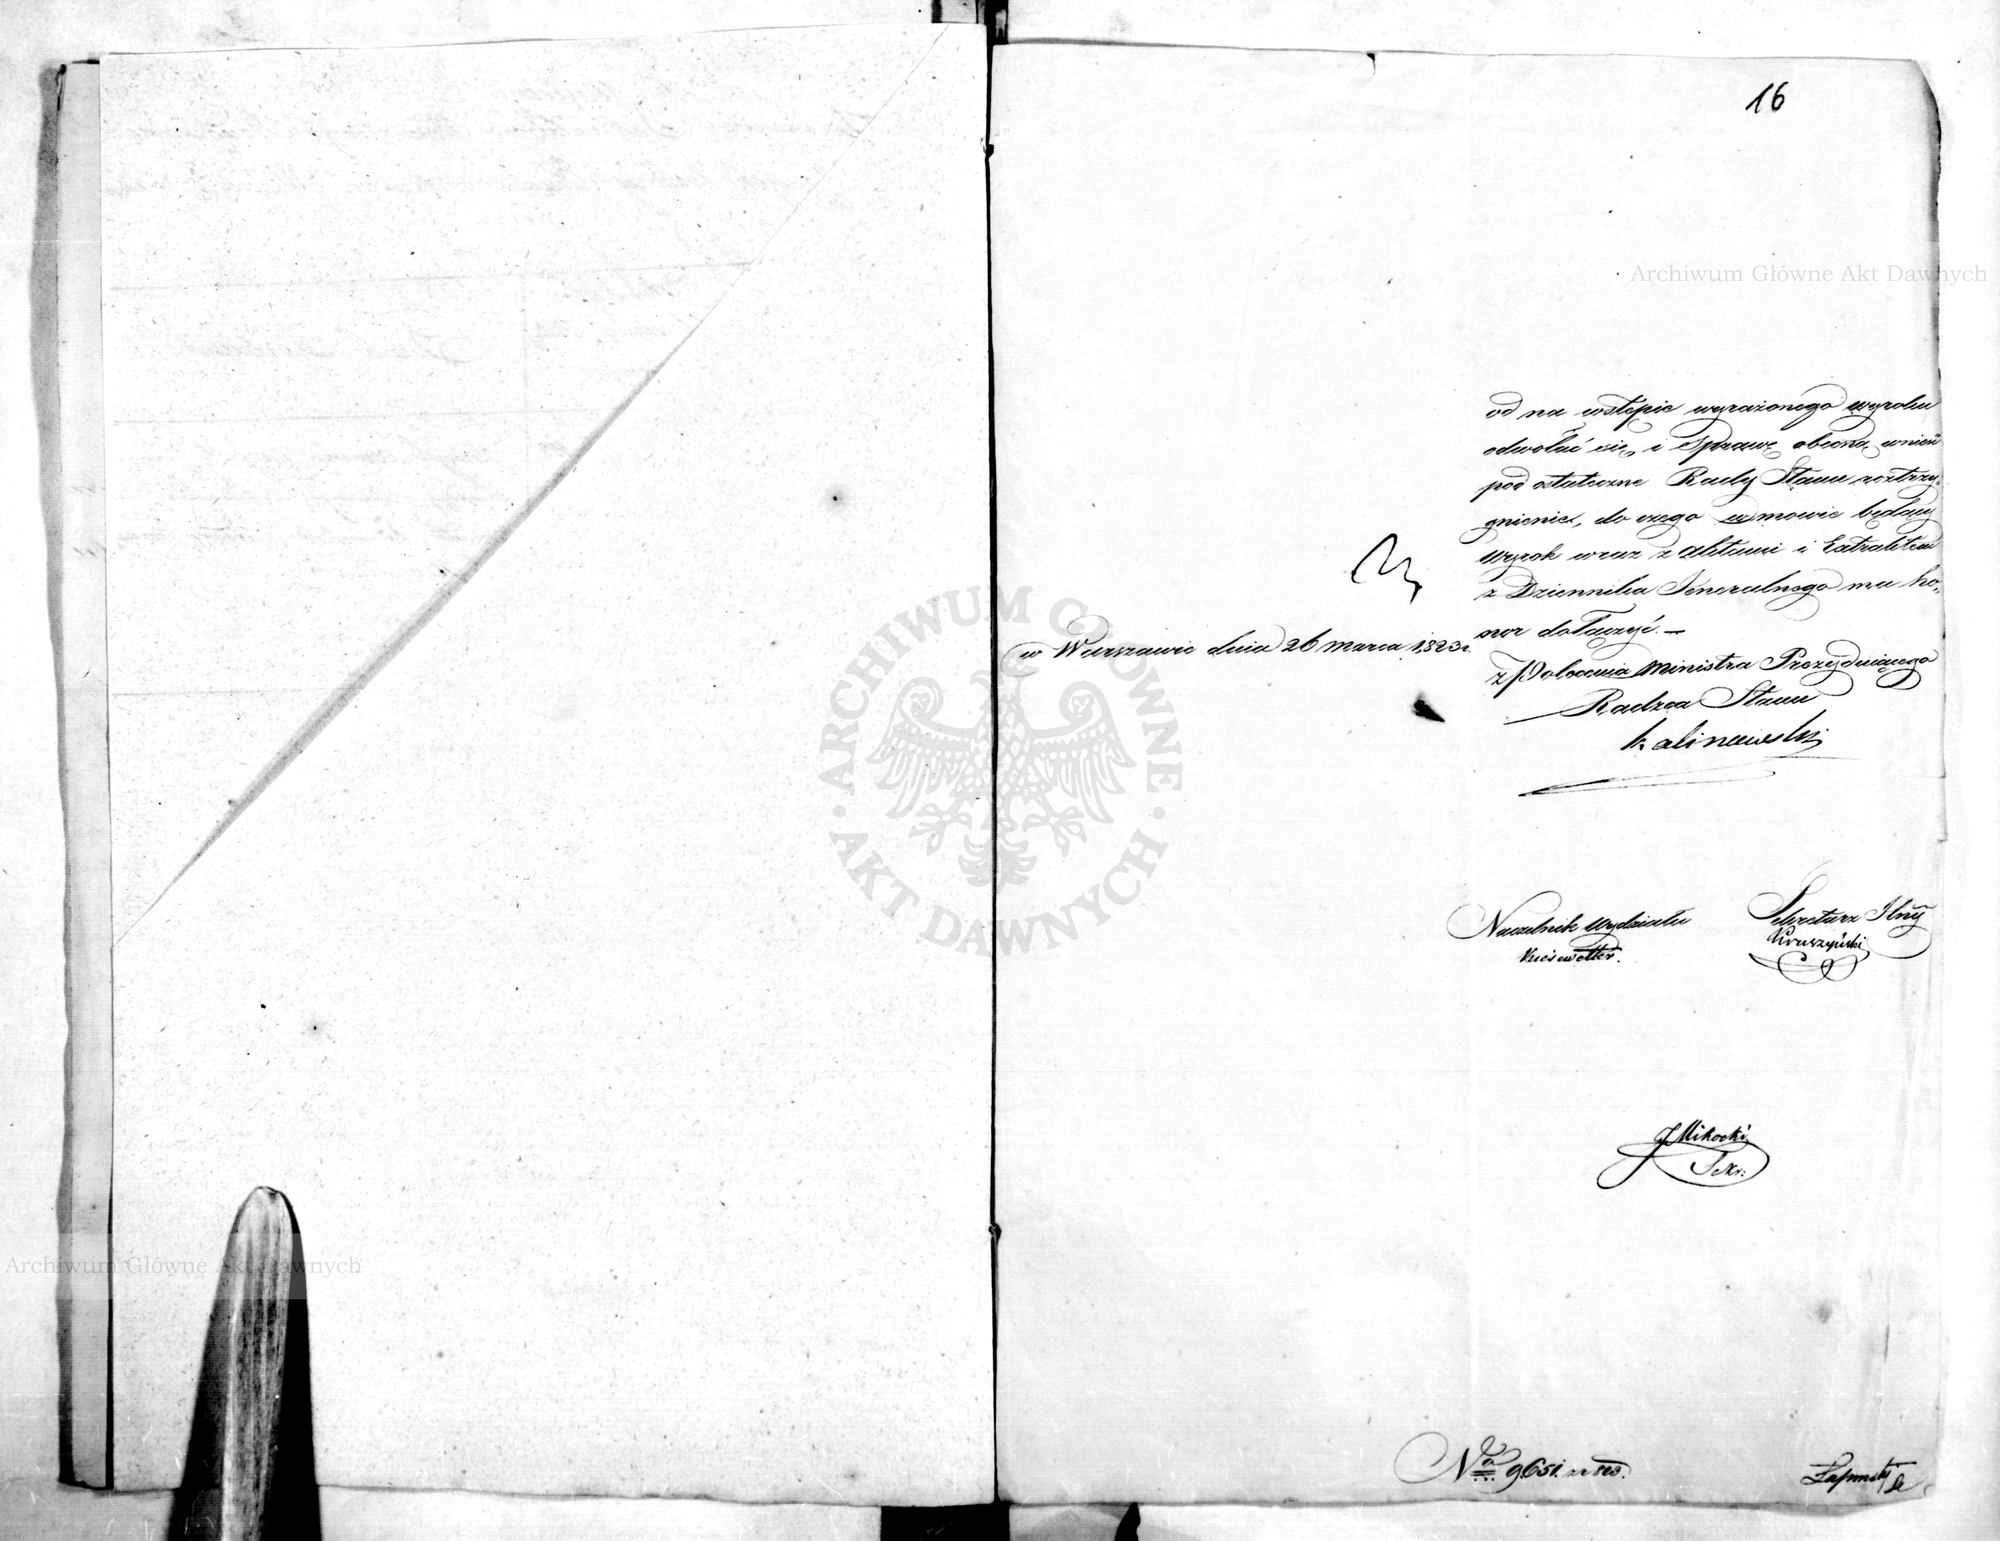 16
Archiwum Główne Akt Dawnych
od na wstępie wyrażonego wyroku
odwołać się, i Sprawę obecną wnieść
pod ostateczne Rady Stanu roztrzy-
gnienie, do czego w mowie będący
Wyrok wraz z Aktami i Extraktem
z Dziennika Jeneralnego ma ho-
nor dołączyć. —
w Warszawie dnia 26 marca 1823 r.
z Polecenia Ministra Prezydującego
Radzca Stanu
Kalinowski
Naczelnik Wydziału
Kiesewetter.
Sekretarz Jlny
Kruszyński
J Mikocki
Sekr:
ARCHIWUM GŁÓWNE · AKT DAWNYCH ·
Archiwum Główne Akt Dawnych
No 9651.